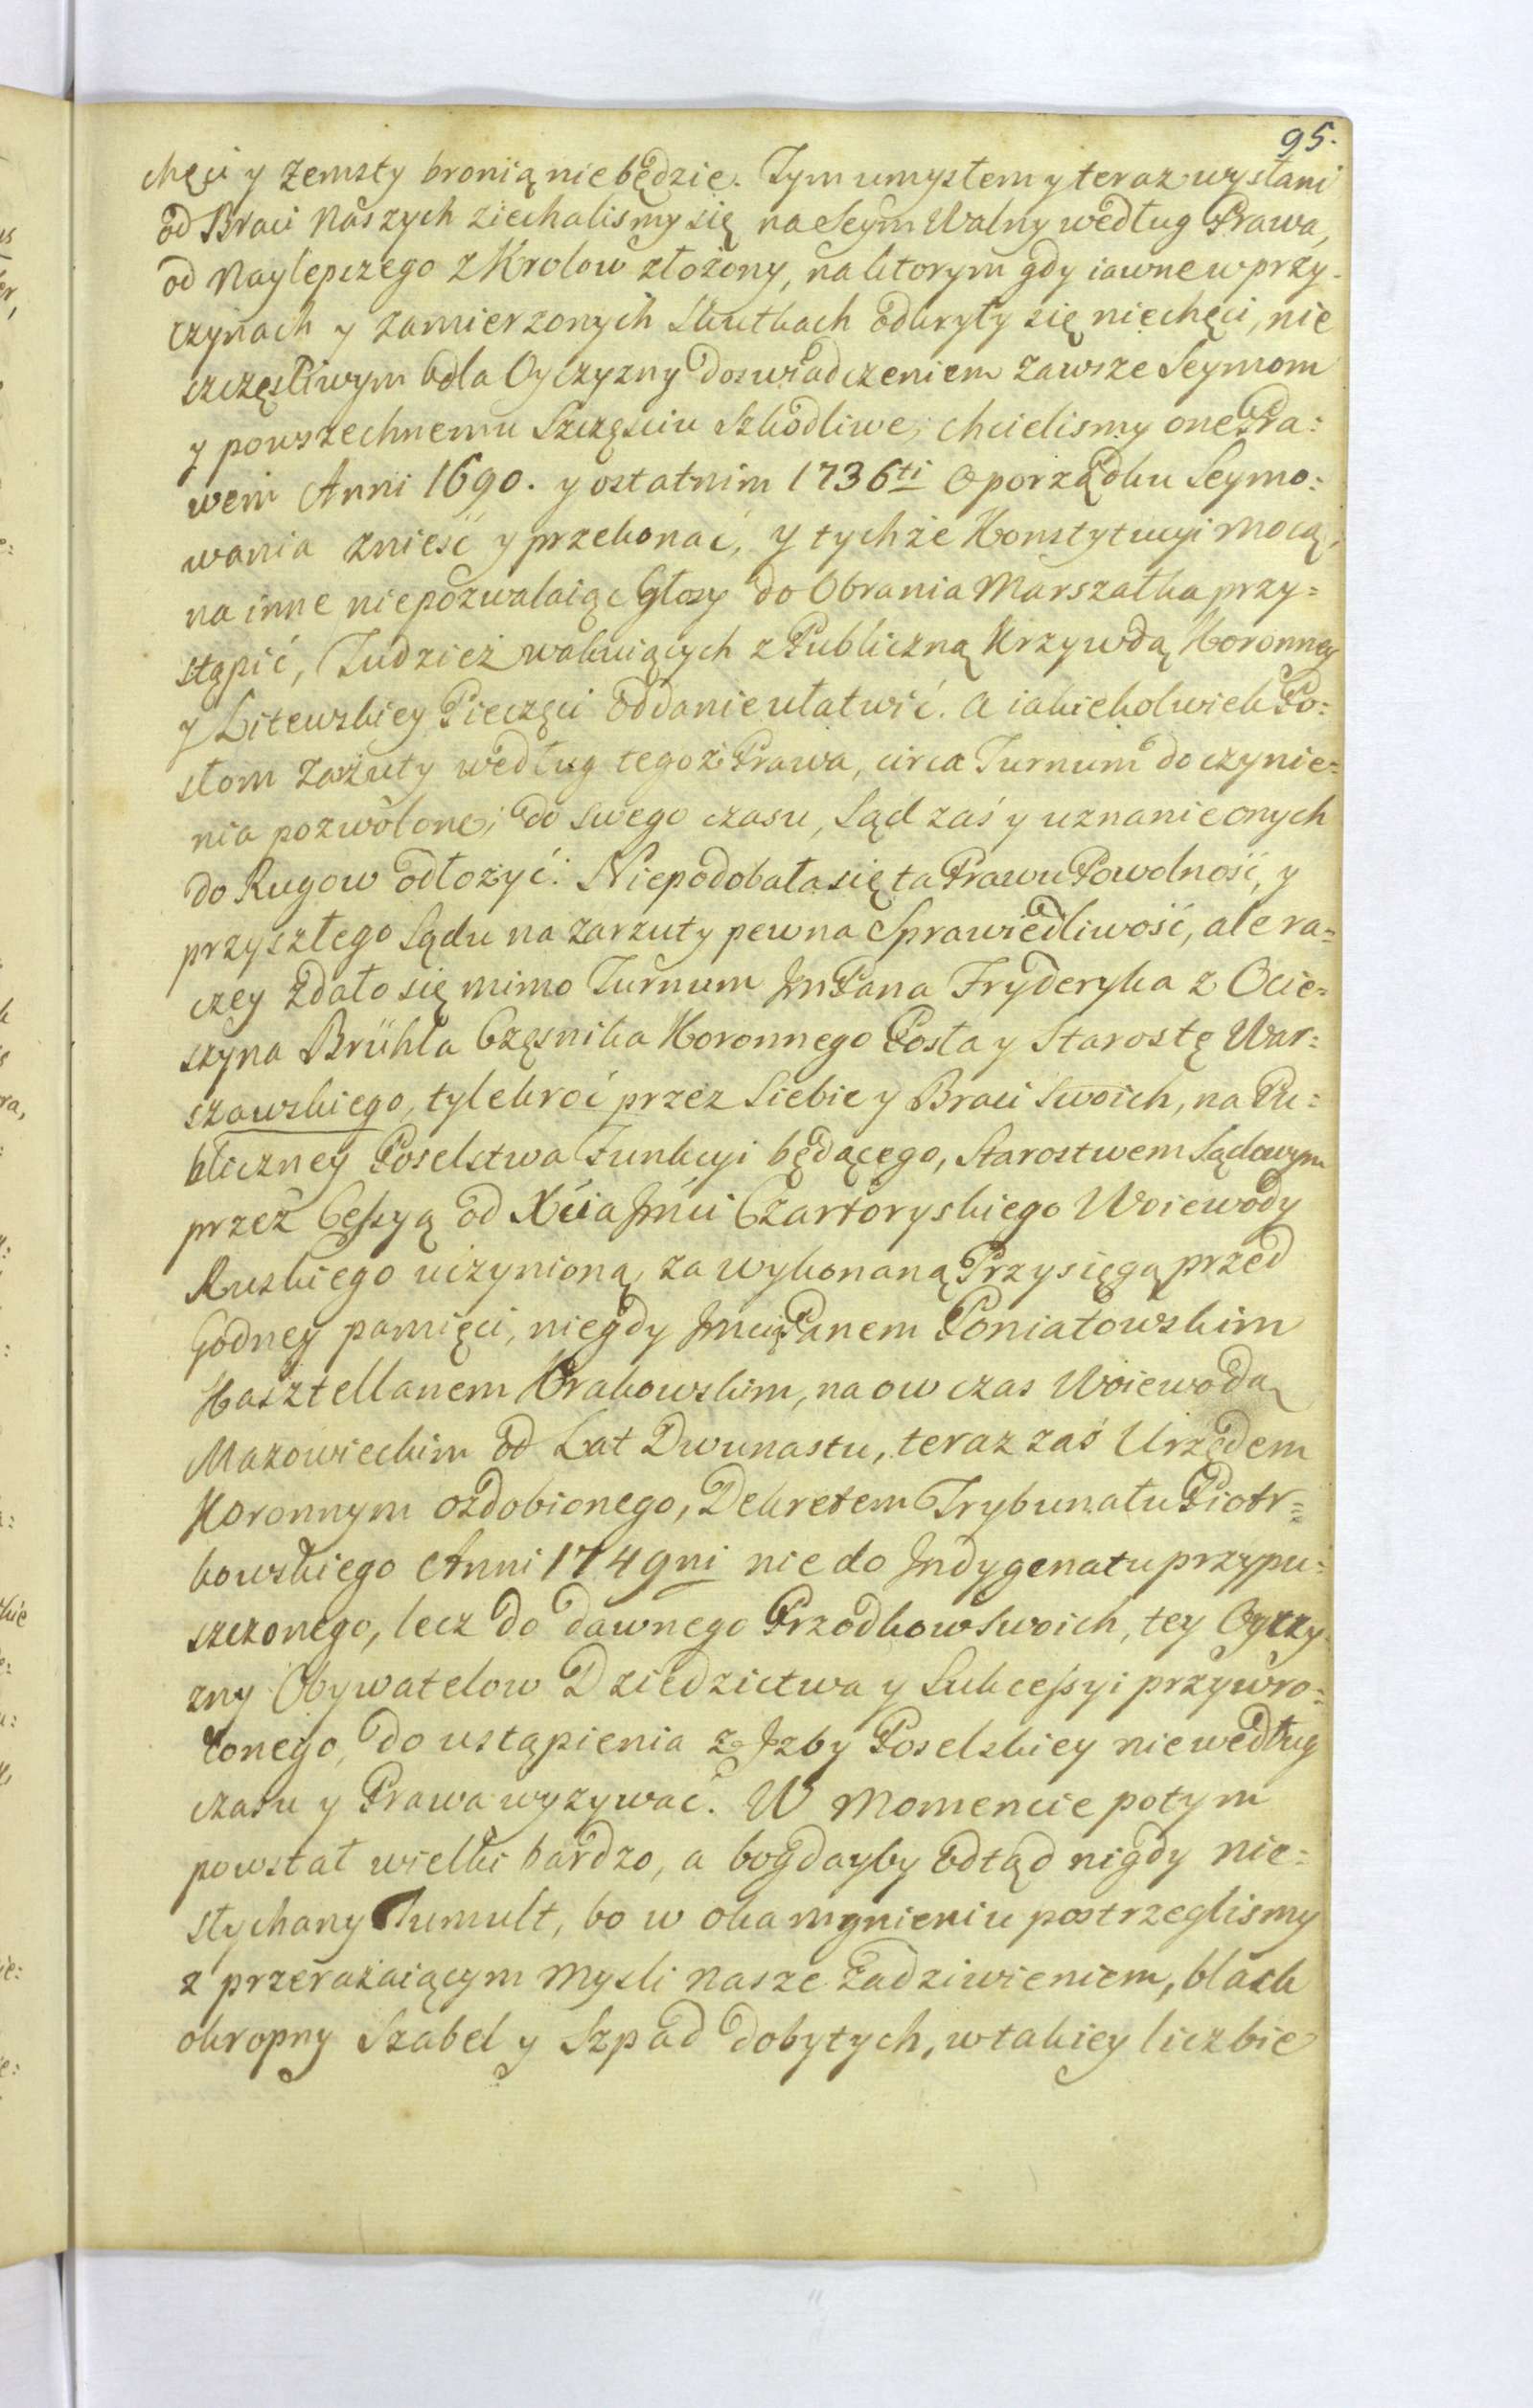 95.
chęci y zemsty bronią nie będzie. Tym umysłem y teraz wysłani
od Braci Naszych ziechalismy się na Seym Walny według Prawa,
od Naylepszego z Krolow złożony, na ktorym gdy iawne w przy-
czynach y zamierzonych skutkach odkryły się niechęci, nie
szczęśliwym dla Oyczyzny doswiadczeniem zawsze Seymom
y powszechnemu Szczęściu szkodliwe; chcielismy one Pra:
wem Anni 1690. y ostatnim 1736ti o porządku Seymo:
wania znieść y przekonać, y tychże Konstytucyi mocą,
na inne niepozwalaiąc Głosy do Obrania Marszałka przy=
stąpić, Tudzież wakuiących z Publiczną Krzywdą Koronney
y Litewskiey Pieczęci oddanie ułatwić. a iakiekolwiek Po:
słom zarzuty według tegoż Prawa, circa Turnum do czynie=
nia pozwolone; do swego czasu, Sąd zaś y uznanie onych
do Rugow odłożyć. Niepodobała się ta Prawu Powolność, y
przyszłego Sądu na zarzuty pewna Sprawiedliwość, ale ra=
czey zdało się mimo Turnum JmPana Fryderyka z Ocie=
szyna Brühla Cześnika Koronnego Posła y Starostę War:
szawskiego, tylekroć przez Siebie y Braci Swoich, na Pu:
bliczney Poselstwa Funkcyi będącego, Starostwem Sądowym
przez Cessyą od Xcia Jmci Czartoryskiego Woiewody
Ruskiego uczynioną, za wykonaną Przysięgą przed
Godney pamięci, niegdy Jmcią Panem Poniatowskim
Kasztellanem Krakowskim, na ow czas Woiewodą
Mazowieckim od Lat Dwunastu, teraz zaś Urzędem
Koronnym ozdobionego, Dekretem Trybunału Piotr=
kowskiego Anni 1749ni nie do Indygenatu przypu:
szczonego, lecz do dawnego Przodkow Swoich, tey Oyczy
zny Obywatelow Dziedzictwa y Sukcessyi przywro=
conego, do ustąpienia z Izby Poselskiey nie według
czasu y Prawa wyzywać. W Momencie potym
powstał wielki bardzo, a bogdayby odtąd nigdy nie=
słychany Tumult, bo w oka mgnieniu postrzeglismy
z przerażaiącym Mysli Nasze zadziwieniem, blask
okropny Szabel y Szpad dobytych, w takiey liczbie